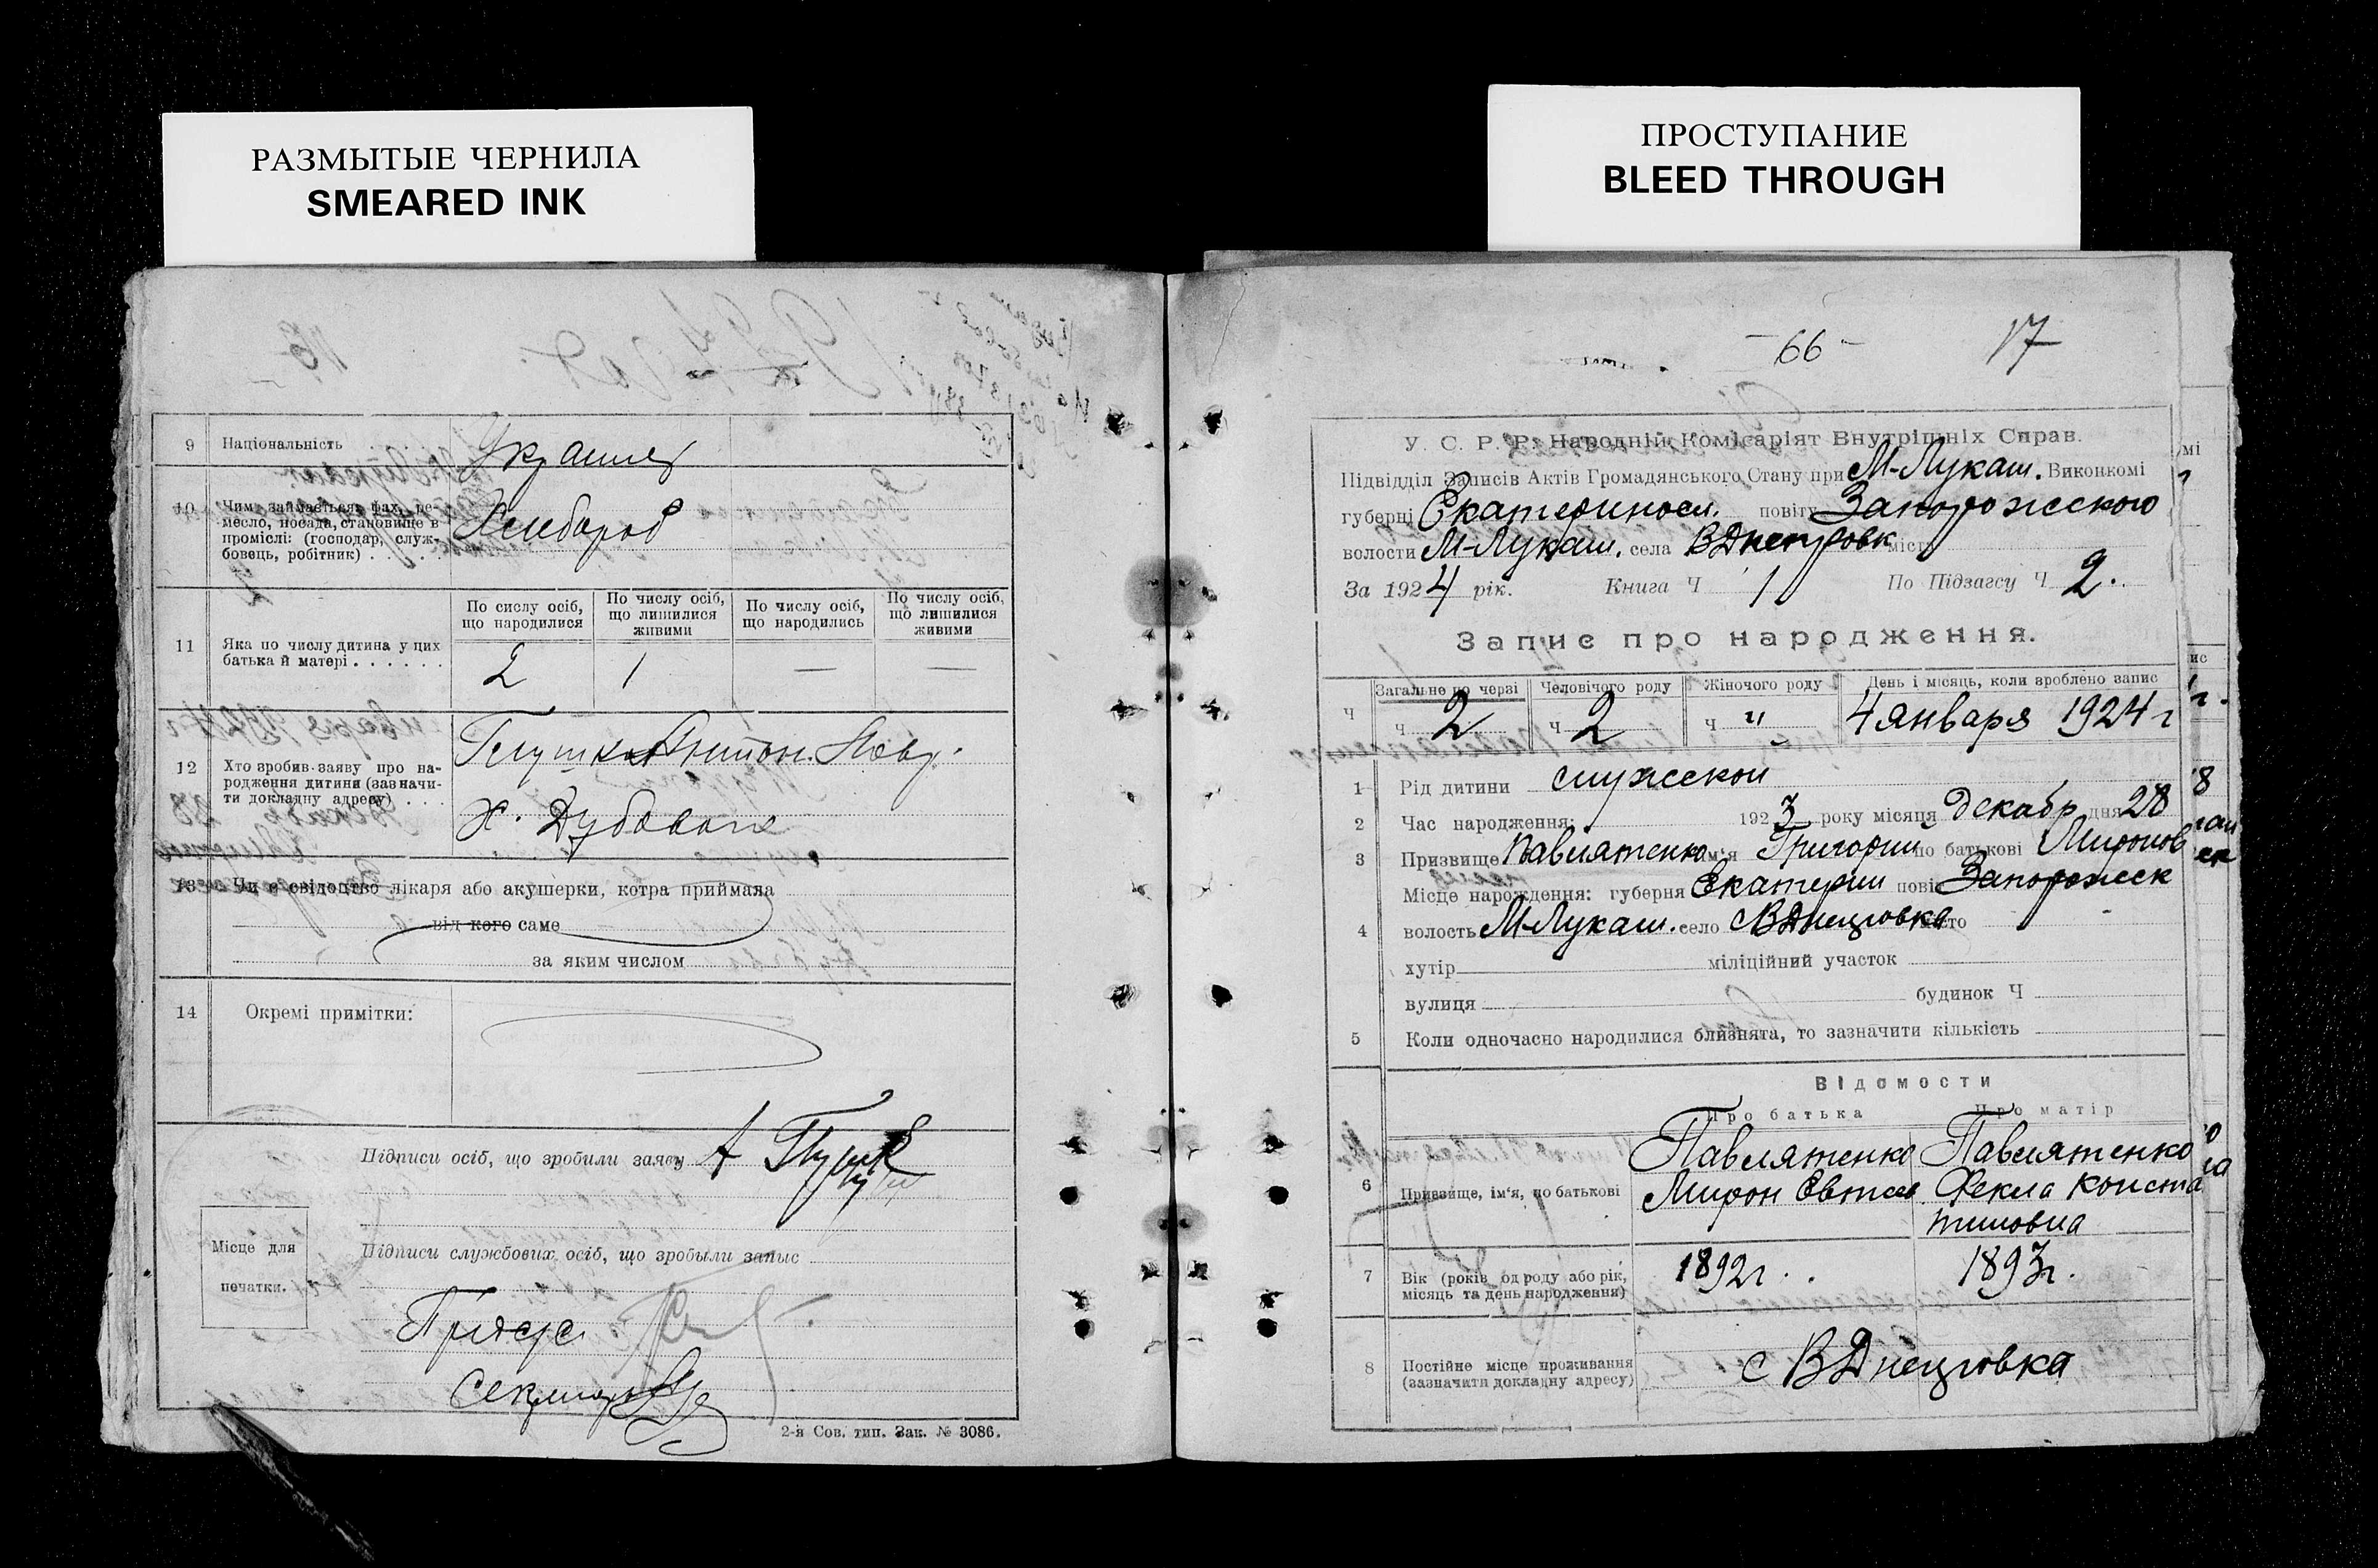 РАЗМЫТЫЕ ЧЕРНИЛА
SMEARED INK
ПРОСТУПАНИЕ
BLEED THROUGH
9 Національність Украинец
10 Чим займається: фах, ре-
месло, посада, становище в
проміслі: (господар, служ-
бовець, робітник) . . . . Хлебороб
По сислу осіб, що народилися
По числу осіб, що лишилися живими
По числу осіб, що народились
По числу осіб, що лишилися живими
11 Яка по числу дитина у цих
батька й матері . . . . . . 2 1 — —
12 Хто зробив заяву про на-
родження дитини (зазначи-
ти докладну адресу) . . .
Глушко Антон
Х.
13 Чи є свідоцтво лікаря або акушерки, котра приймала
від кого саме
за яким числом
14 Окремі примітки:
Підписи осіб, що зробили заяву А
Місце для
печатки.
Підписи службових осіб, що зробыли запыс
2-я Сов. тип. Зак. № 3086.
-66- 17
У. С. Р. Р. Народній Комісаріят Внутрішніх Справ.
Підвідділ Записів Актів Громадянського Стану при М-Лукаш. Виконкомі
губерні Екатеринosл. повіту Запорожского
волости М-Лукаш. села ВДнепровк міста
За 1924 рік. Книга Ч 1 По Підзагсу Ч 2.
Запис про народження.
Загальне по черзі Человічого роду Жіночого роду День і місяць, коли зроблено запис
Ч ч 2 ч 2 ч " 4 января 1924 г
1 Рід дитини мужской
2 Час народження: 1923 року місяця Декабр дня 28
3 Призвище Павлятенко ім'я Григорий по батькові Миронов
Місце народження: губерня Екатерин повіт Запорожск
4 волость М-Лукаш. село ВДнепровка місто
хутір міліційний участок
вулиця будинок Ч
5 Коли одночасно народилися близнята, то зазначити кількість
Відомости
Про батька Про матір
6 Призвище, ім'я, по батькові
Павлятенко Мирон Евтеев
Павлятенко Фекла Конста
тиновна
7 Вік (років од роду або рік,
місяць та день народження) 1892г. 1893г.
8 Постійне місце проживання
(зазначити докладну адресу) с ВДнепровка